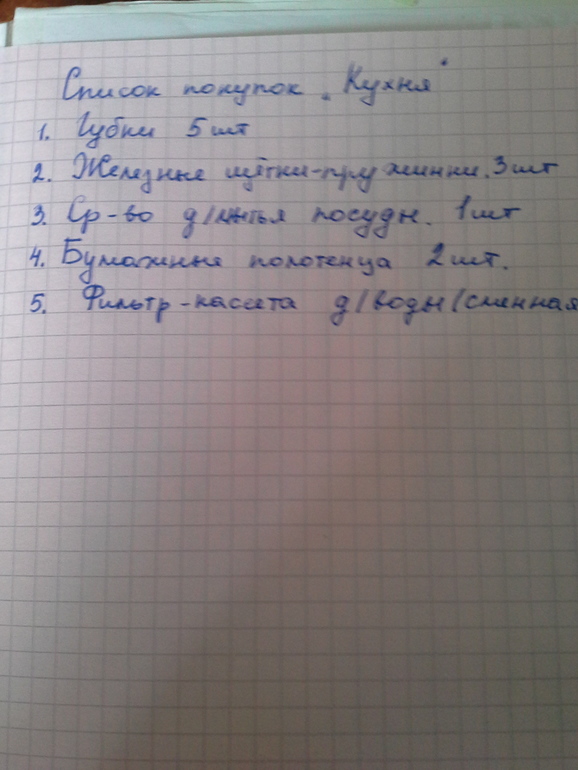 Список покупок „Кухня"
1. Губки 5 шт
2. Железные щётки-пружинки. 3 шт
3. Ср-во д/мытья посуды. 1 шт
4. Бумажные полотенца 2 шт.
5. Фильтр-кассета д/воды/сменная